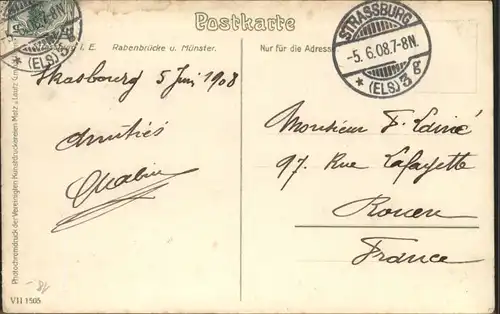 Postkarte
i. E. Rabenbrücke u. Münster.
Nur für die Adresse
STRASSBURG
-5.6.08.7-8N.
* (ELS) 3 g
* (ELS) 3 g
Strasbourg 5 Juin 1908
Amitiés
Monsieur F.
97. Rue Lafayette
Rouen
France
Photochromdruck der Vereinigten Kunstdruckereien Metz
VII 1505